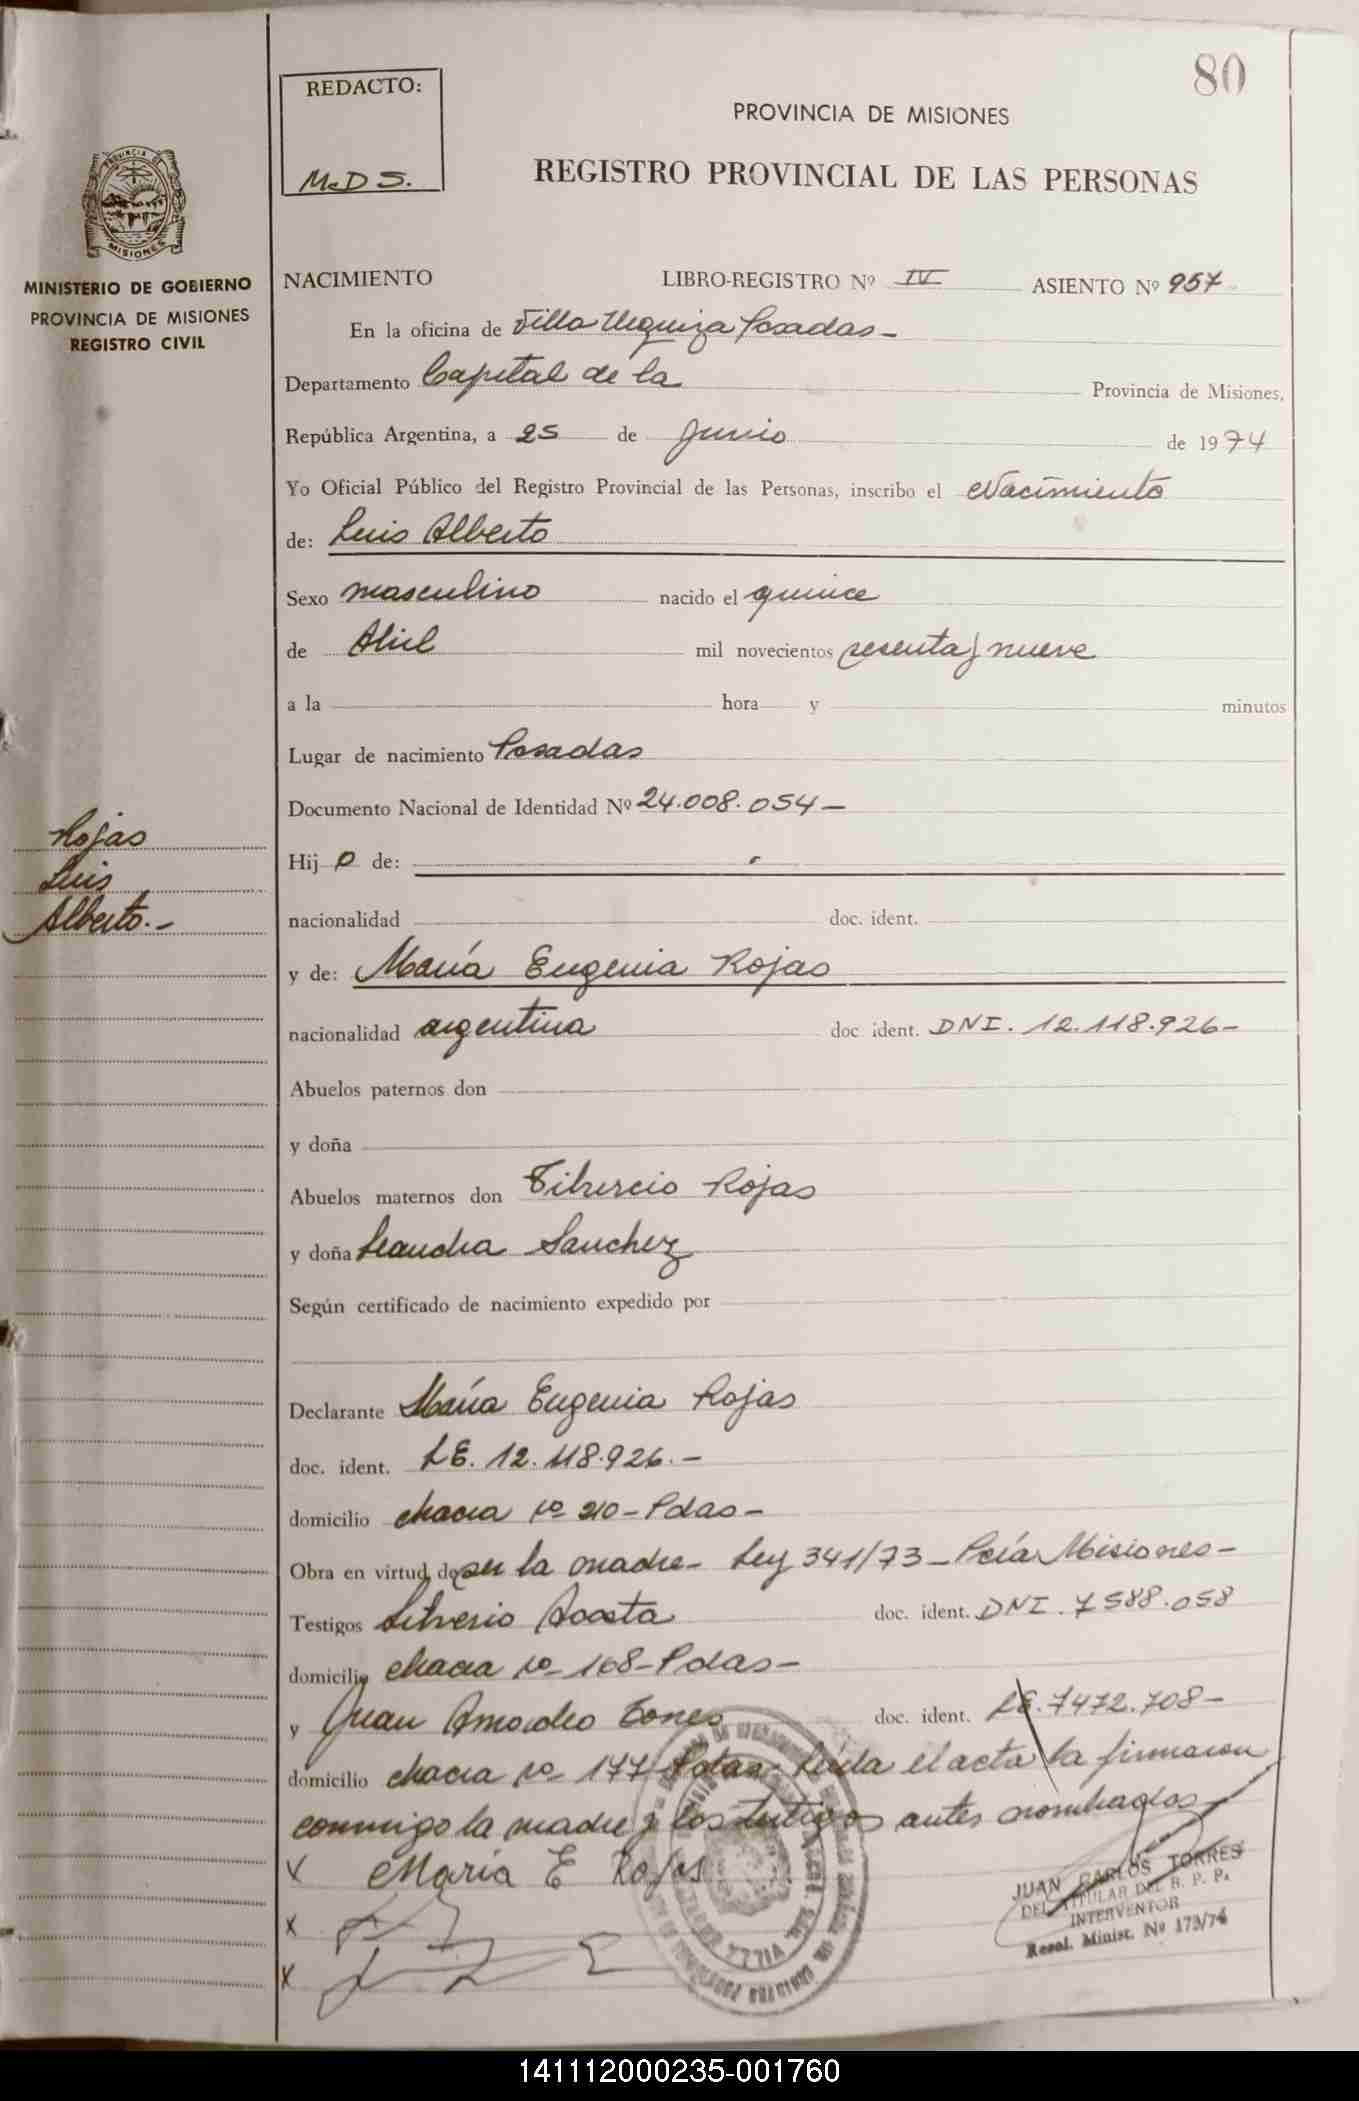 80
REDACTO:
McDS.
PROVINCIA DE MISIONES
REGISTRO PROVINCIAL DE LAS PERSONAS
PROVINCIA DE
MISIONES
MINISTERIO DE GOBIERNO
PROVINCIA DE MISIONES
REGISTRO CIVIL
NACIMIENTO LIBRO-REGISTRO Nº IV ASIENTO Nº 957
En la oficina de Villa Urquiza Posadas -
Departamento Capital de la Provincia de Misiones,
República Argentina, a 25 de Junio de 1974
Yo Oficial Público del Registro Provincial de las Personas, inscribo el Nacimiento
de: Luis Alberto
Sexo masculino nacido el quince
de Abril mil novecientos sesenta y nueve
a la hora y minutos
Lugar de nacimiento Posadas
Documento Nacional de Identidad Nº 24.008.054 -
Rojas
Luis
Alberto.-
Hij o de:
nacionalidad doc. ident.
y de: María Eugenia Rojas
nacionalidad argentina doc ident. DNI. 12.118.926 -
Abuelos paternos don
y doña
Abuelos maternos don Tiburcio Rojas
y doña Leandra Sanchez
Según certificado de nacimiento expedido por
Declarante María Eugenia Rojas
doc. ident. LE. 12.118.926. -
domicilio chacra nº 210 - Pdas -
Obra en virtud de ser la madre - Ley 341/73 - Pcia Misiones -
Testigos Silverio Acosta doc. ident. DNI. 7588.058
domicilio chacra nº 168 - Pdas -
y Juan Amadeo doc. ident. LE. 7472.708 -
domicilio chacra nº 177 Pdas - Leída el acta la firmaron
conmigo la madre y los testigos antes nombrados
x Maria E Rojas
x
x
JUAN CARLOS TORRES
DEL. TITULAR DEL R. P. P.
INTERVENTOR
Resol. Minist. Nº 173/74
141112000235-001760